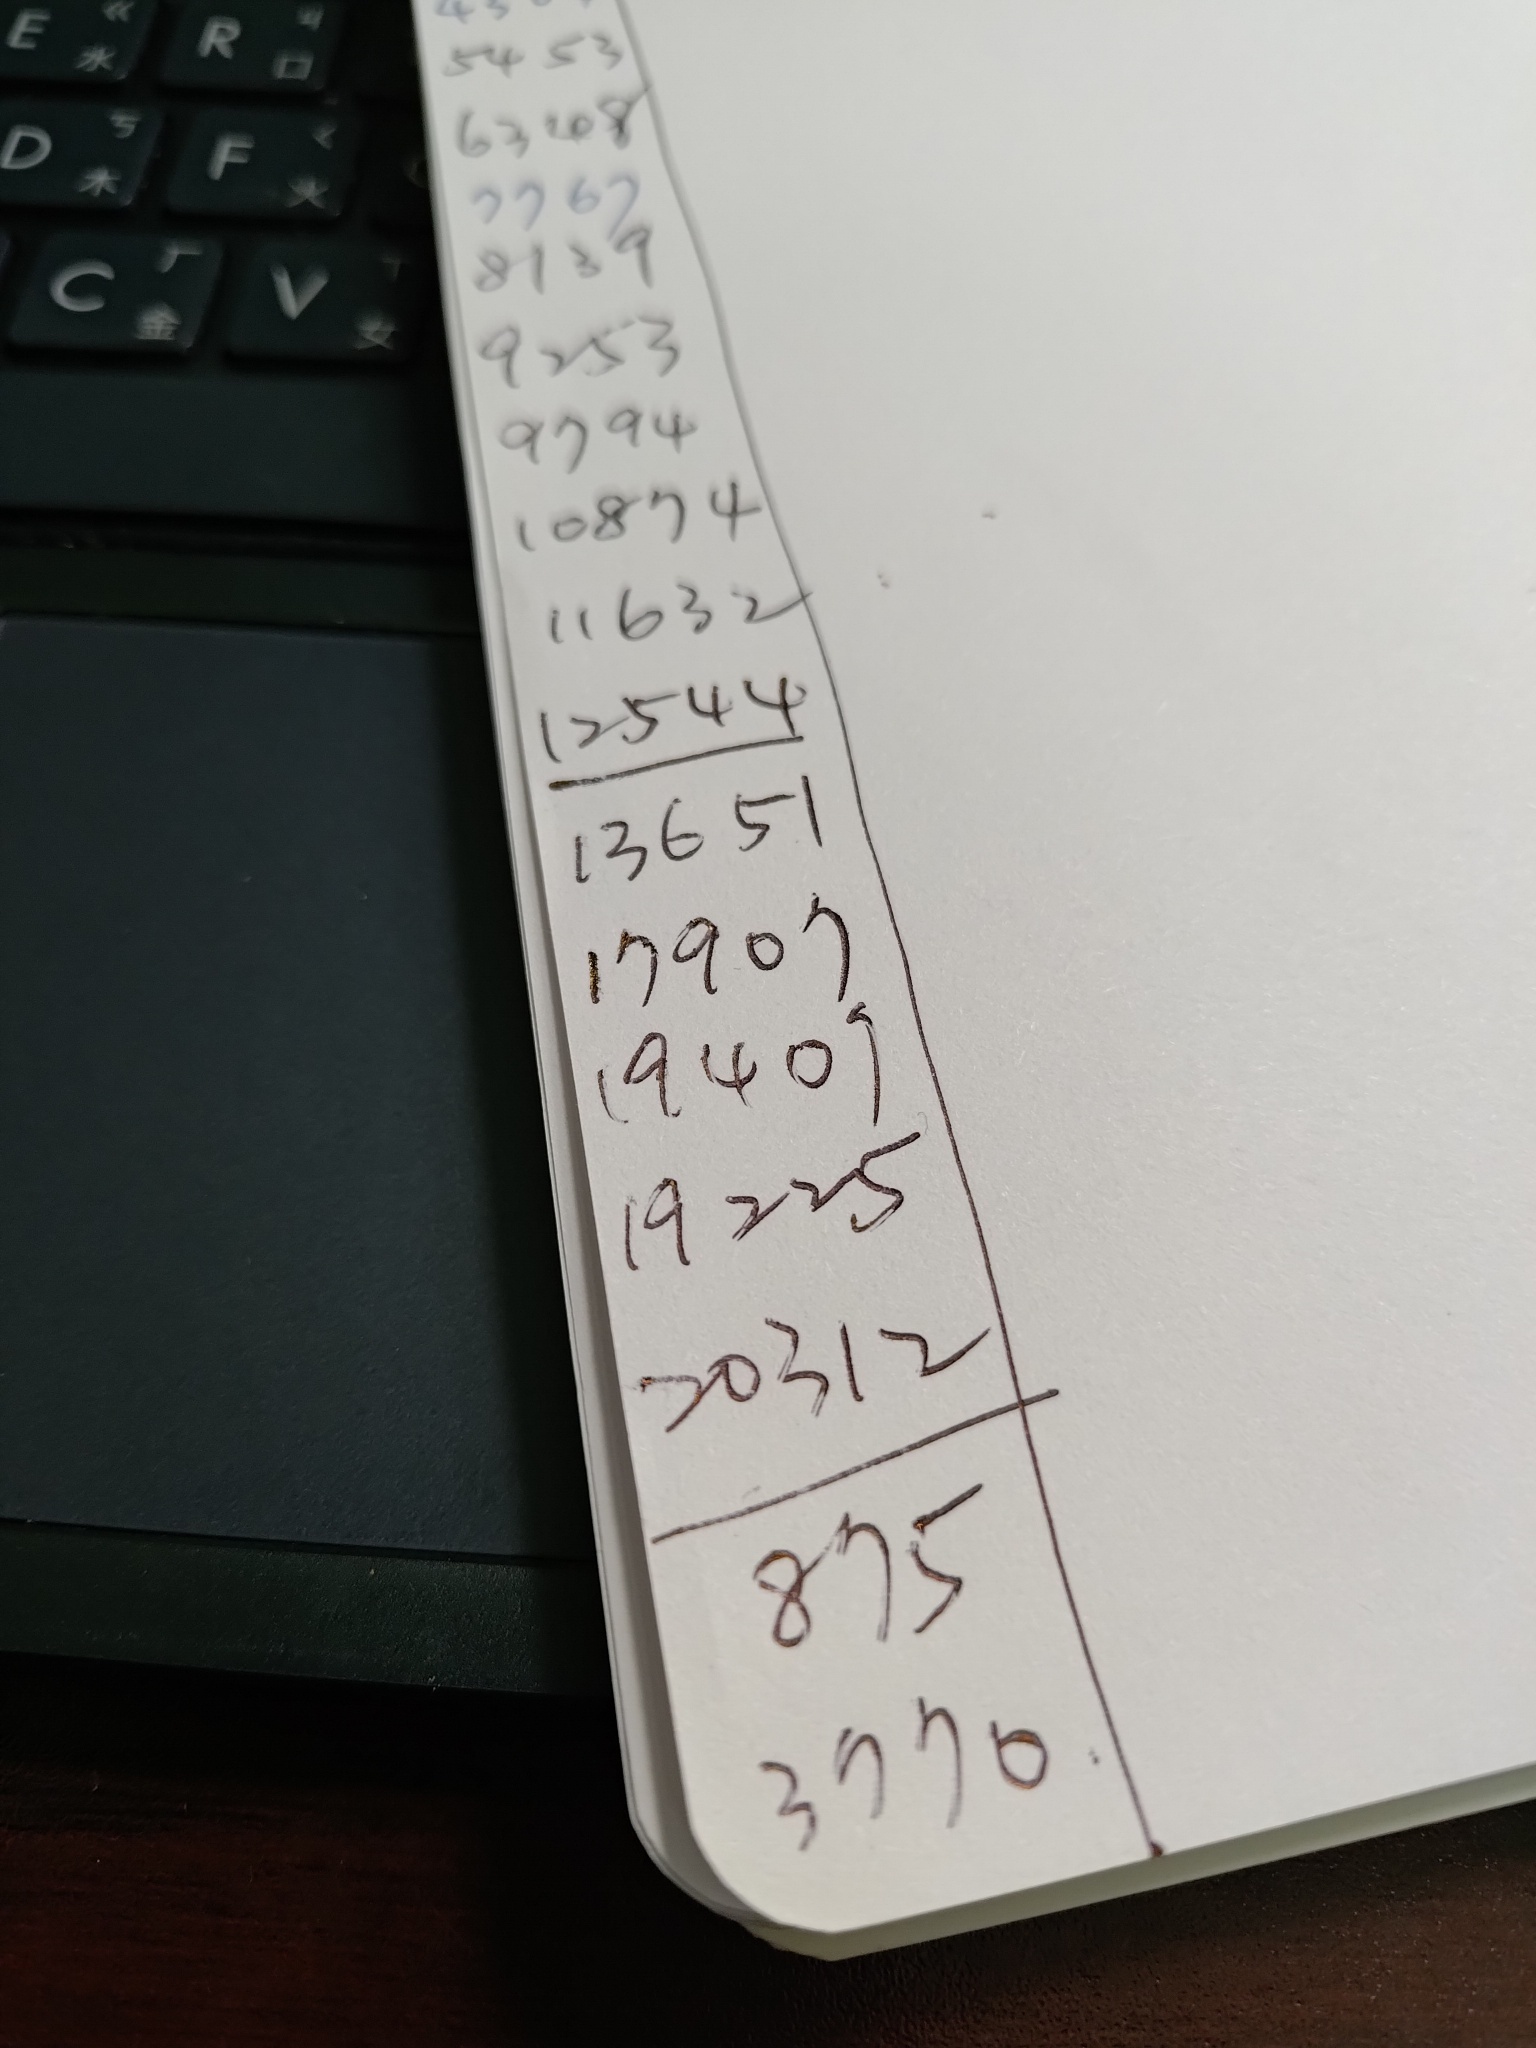 E 水
R 口
D ㄎ 木
F ㄑ 火
C ㄏ 金
V ㄒ 女
5453
6348
7767
8139
9253
9794
10874
11632
12544
13651
17907
19407
19225
20312
875
3770